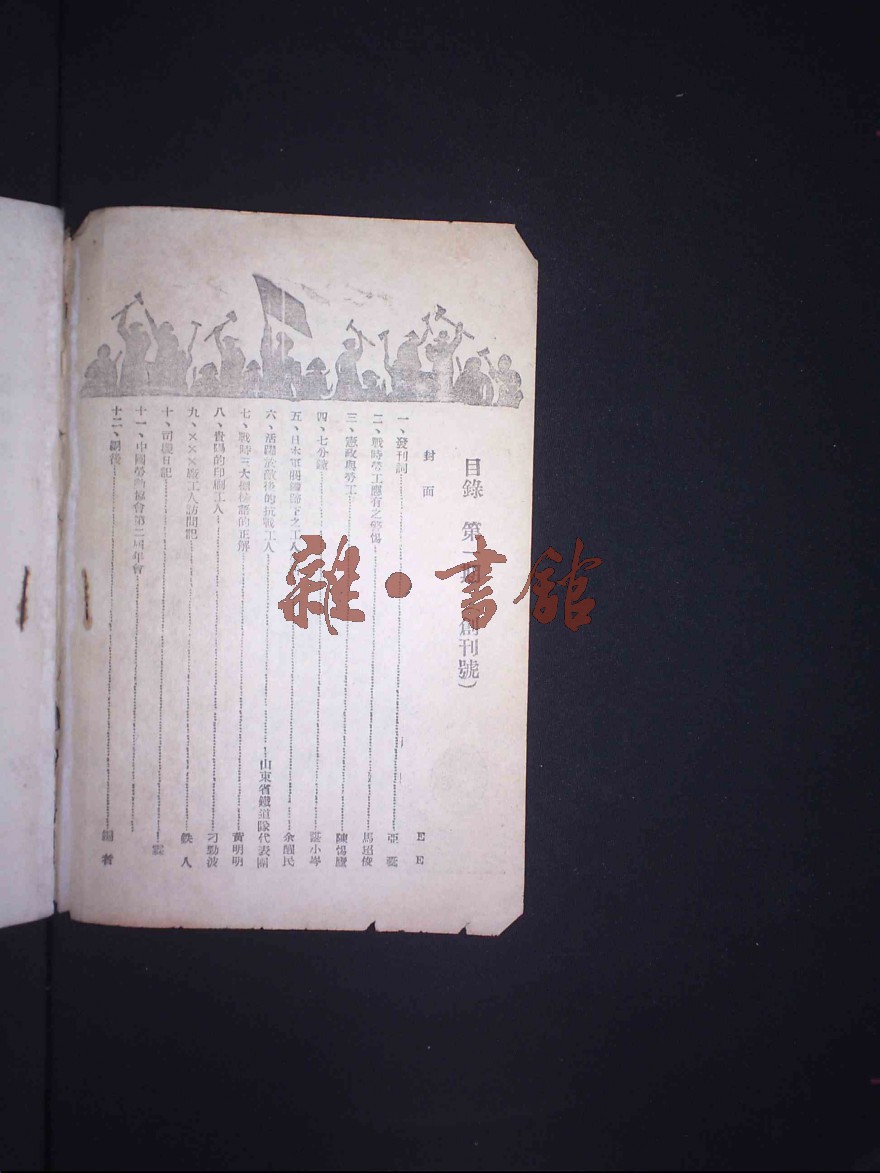 目錄 第一期（創刊號）
封面 E E
一、發刊詞 亞
二、戰時勞工應有之警惕 馬超俊
三、憲政與勞工 陳惕廬
四、七分鐘 諶小岑
五、日本軍閥鐵蹄下之工人 余韶民
六、活躍於敵後的抗戰工人 山東省鐵道隊代表團
七、戰時三大標語的正解 黃明明
八、貴陽的印刷工人 刁勤波
九、×××廠工人訪問記 鉄人
十、司機日記 霖
十一、中國勞動協會第二屆年會
十二、編後 編者
雜·書館